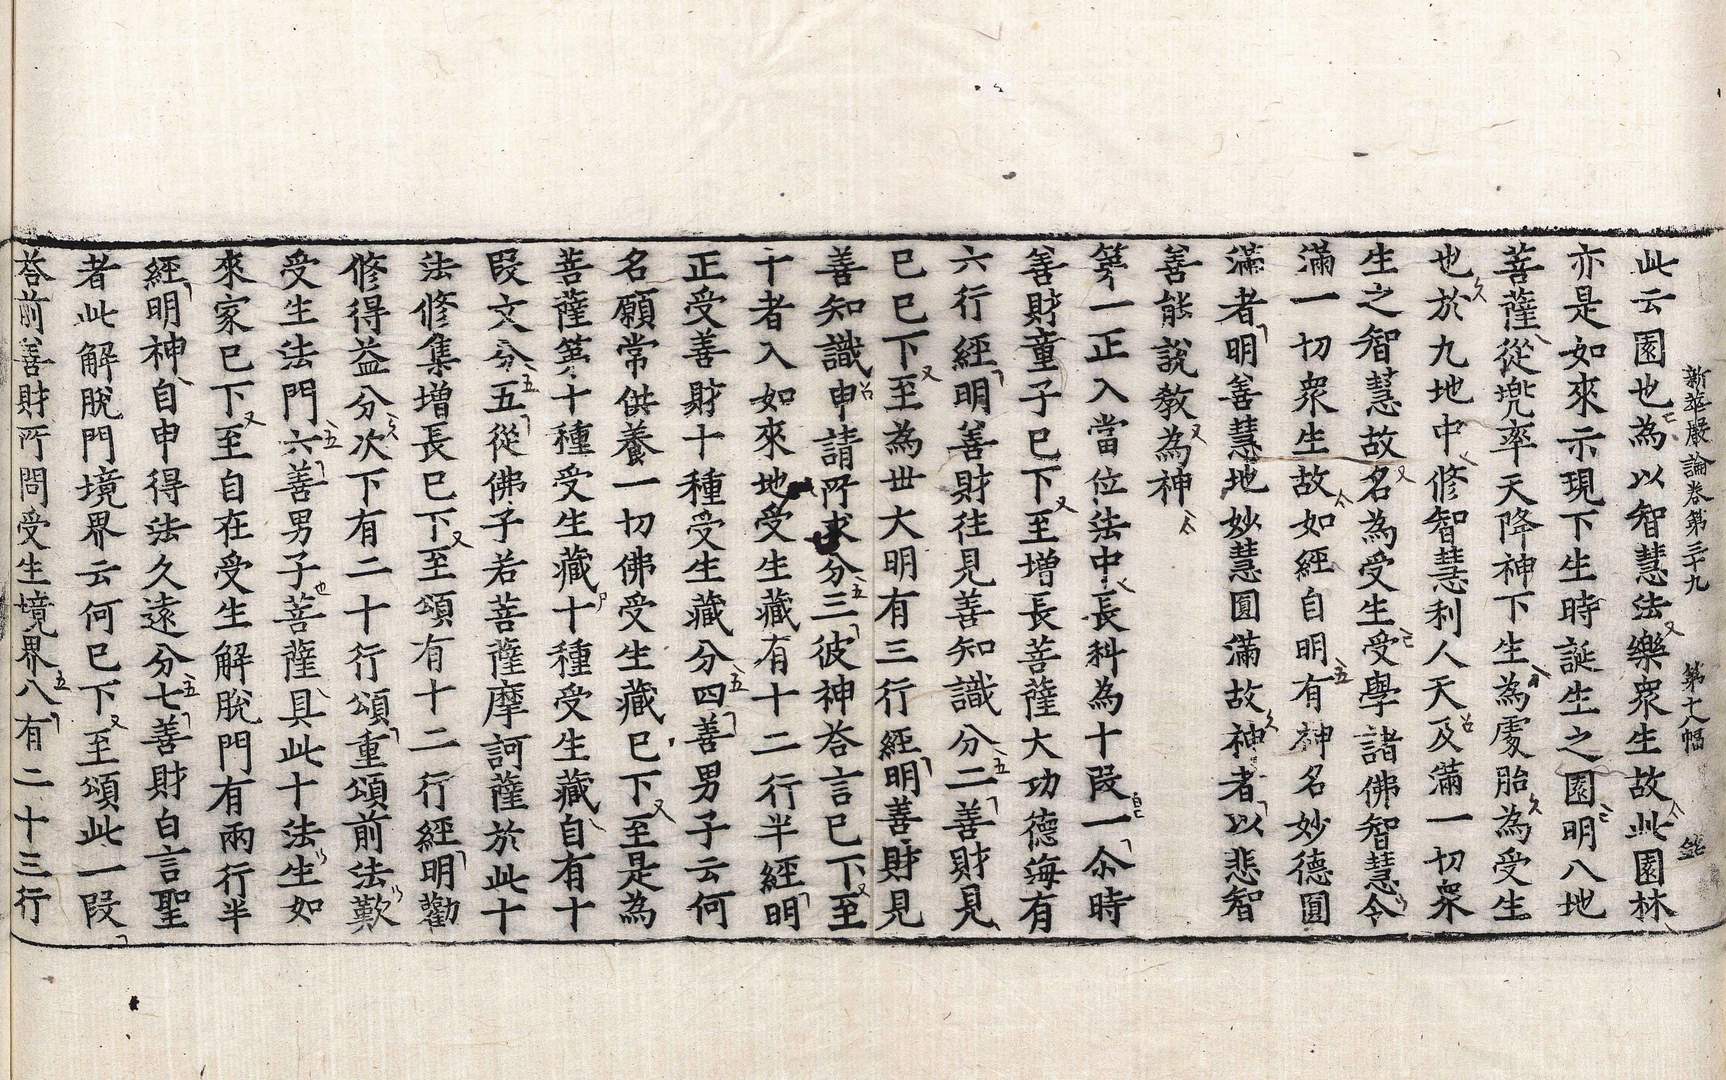 新華嚴論卷第三十九　第十八幅
此云園也為以智慧法樂衆生故此園林
亦是如來示現下生時誕生之園明八地
菩薩從兠率天降神下生為處胎為受生
也於九地中修智慧利人天及滿一切衆
生之智慧故名為受生受學諸佛智慧令
滿一切衆生故如經自明有神名妙德圓
滿者明善慧地妙慧圓滿故神者以悲智
善能說教為神
第一正入當位法中長科為十段一尒時
善財童子已下至增長菩薩大功德海有
六行經明善財往見善知識分二善財見
已已下至為世大明有三行經明善財見
善知識申請所求分三彼神荅言已下至
十者入如來地受生藏有十二行半經明
正受善財十種受生藏分四善男子云何
名願常供養一切佛受生藏已下至是為
菩薩第十種受生藏十種受生藏自有十
段文分五從佛子若菩薩摩訶薩於此十
法修集增長已下至頌有十二行經明勸
修得益分次下有二十行頌重頌前法歎
受生法門六善男子菩薩具此十法生如
來家已下至自在受生解脫門有兩行半
經明神自申得法久遠分七善財白言聖
者此解脫門境界云何已下至頌此一段
荅前善財所問受生境界八有二十三行